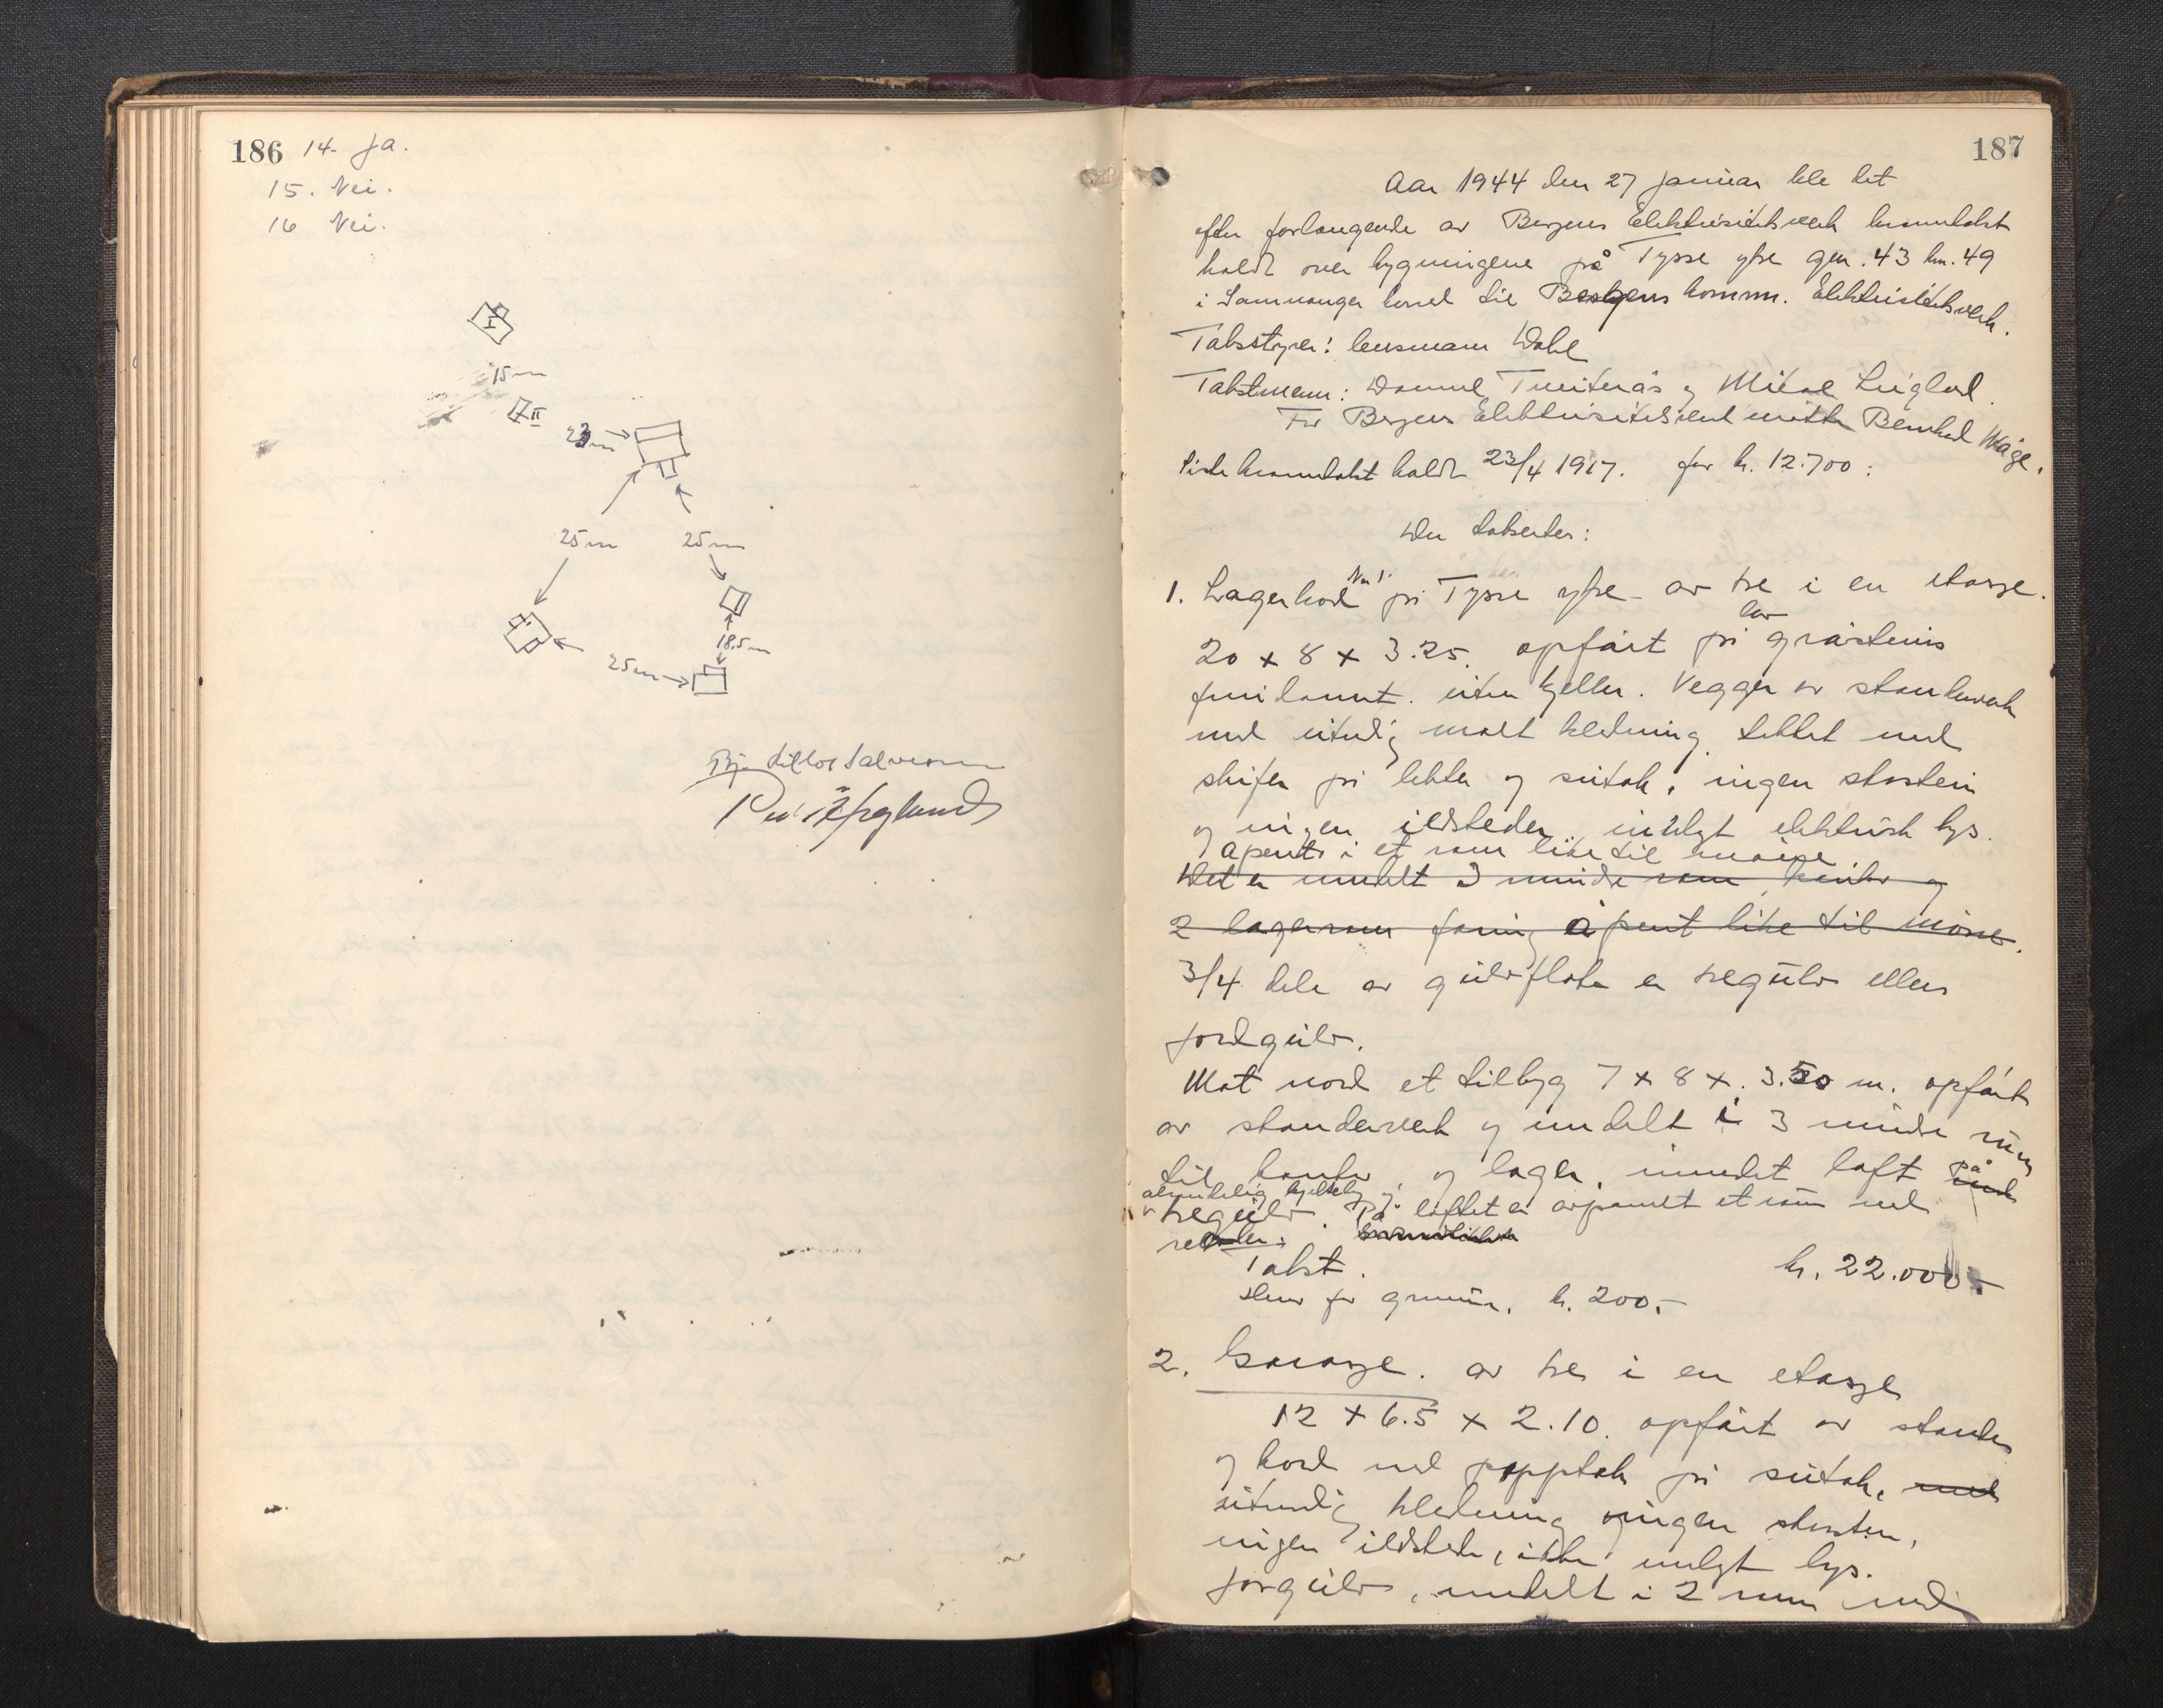 186 14. Ja.
15. Nei.
16 Nei.
I
15 m
II
23 m
25 m 25 m
18.5 m
25 m
187
Aar 1944 den 27 januar ble det
efter forlangende av Bergens Elektrisitetsverk branntakst
holdt over bygningene på Tysse ytre gnr. 43 bn. 49
i Samnanger herred til Bergens komm. Elektrisitetsverk.
Takststyrer: lensmann Dahl
Takstmenn: Daniel Tveiterås og Mikal
For Bergens Elektrisitetsverk møtte Bernhard Måge.
Siste branntakst holdt 23/4 1917. for kr. 12.700:
Der takseres:
1. Lagerbod No 1. på Tysse ytre - av tre i en etasje.
20 x 8 x 3.25. opført på lav gråsteins
fundament. uten kjeller. Vegger av stenderverk
med utvendig malt kledning. tekket med
skifer på lekter og sutak, ingen skorstein
og ingen ildsteder. innlagt elektrisk lys.
åpent i et rom like til møne
Det er inndelt 3 mindre rom, kontor og
2 lagerrom forøvrig åpent like til mønet.
3/4 dele av gulvflaten er tregulv ellers
jordgulv.
Mot nord et tilbygg 7 x 8 x 3.50 m. opført
av stenderverk og inndelt i 3 mindre rum
til kontor og lager, innredet loft på
almindelig bjelkelag og
tregulv. På loftet er avpanelt et rum med
reoler.
Takst. kr. 22.000.-
Herav for grunnmur. kr. 200.-
2. Garasje. av tre i en etasje
12 x 6.5 x 2.10. opført av stender
og bord med papptak på sutak, med
utvendig kledning ingen skorsten,
ingen ildsteder, ikke innlagt lys.
jorgulv, inndelt i 2 rum med